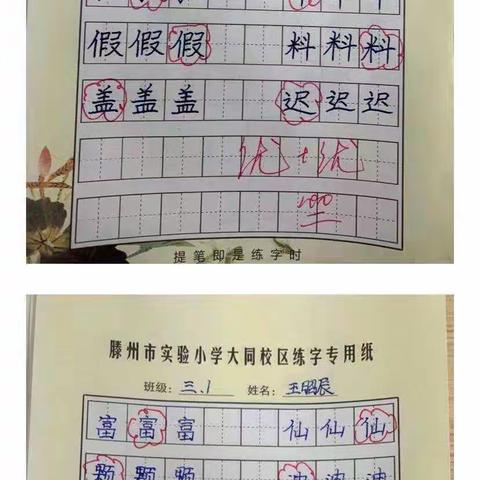 假 假 假 料 料 料
盖 盖 盖 迟 迟 迟
优+优
100
提笔即是练字时
滕州市实验小学大同校区练字专用纸
班级：三.1 姓名：王昭辰
富 富 富 仙 仙 仙
颗 颗 颗 波 波 波